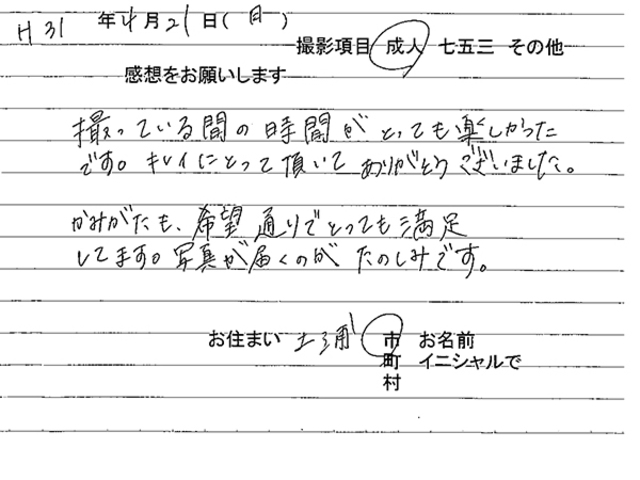 H31 年4月21日(日)
撮影項目 成人 七五三 その他
感想をお願いします
撮っている間の時間がとっても楽しかった
です。キレイにとって頂いてありがとうございました。
かみがたも、希望通りでとっても満足
してます。写真が届くのがたのしみです。
お住まい 土浦 市 お名前
町 イニシャルで
村